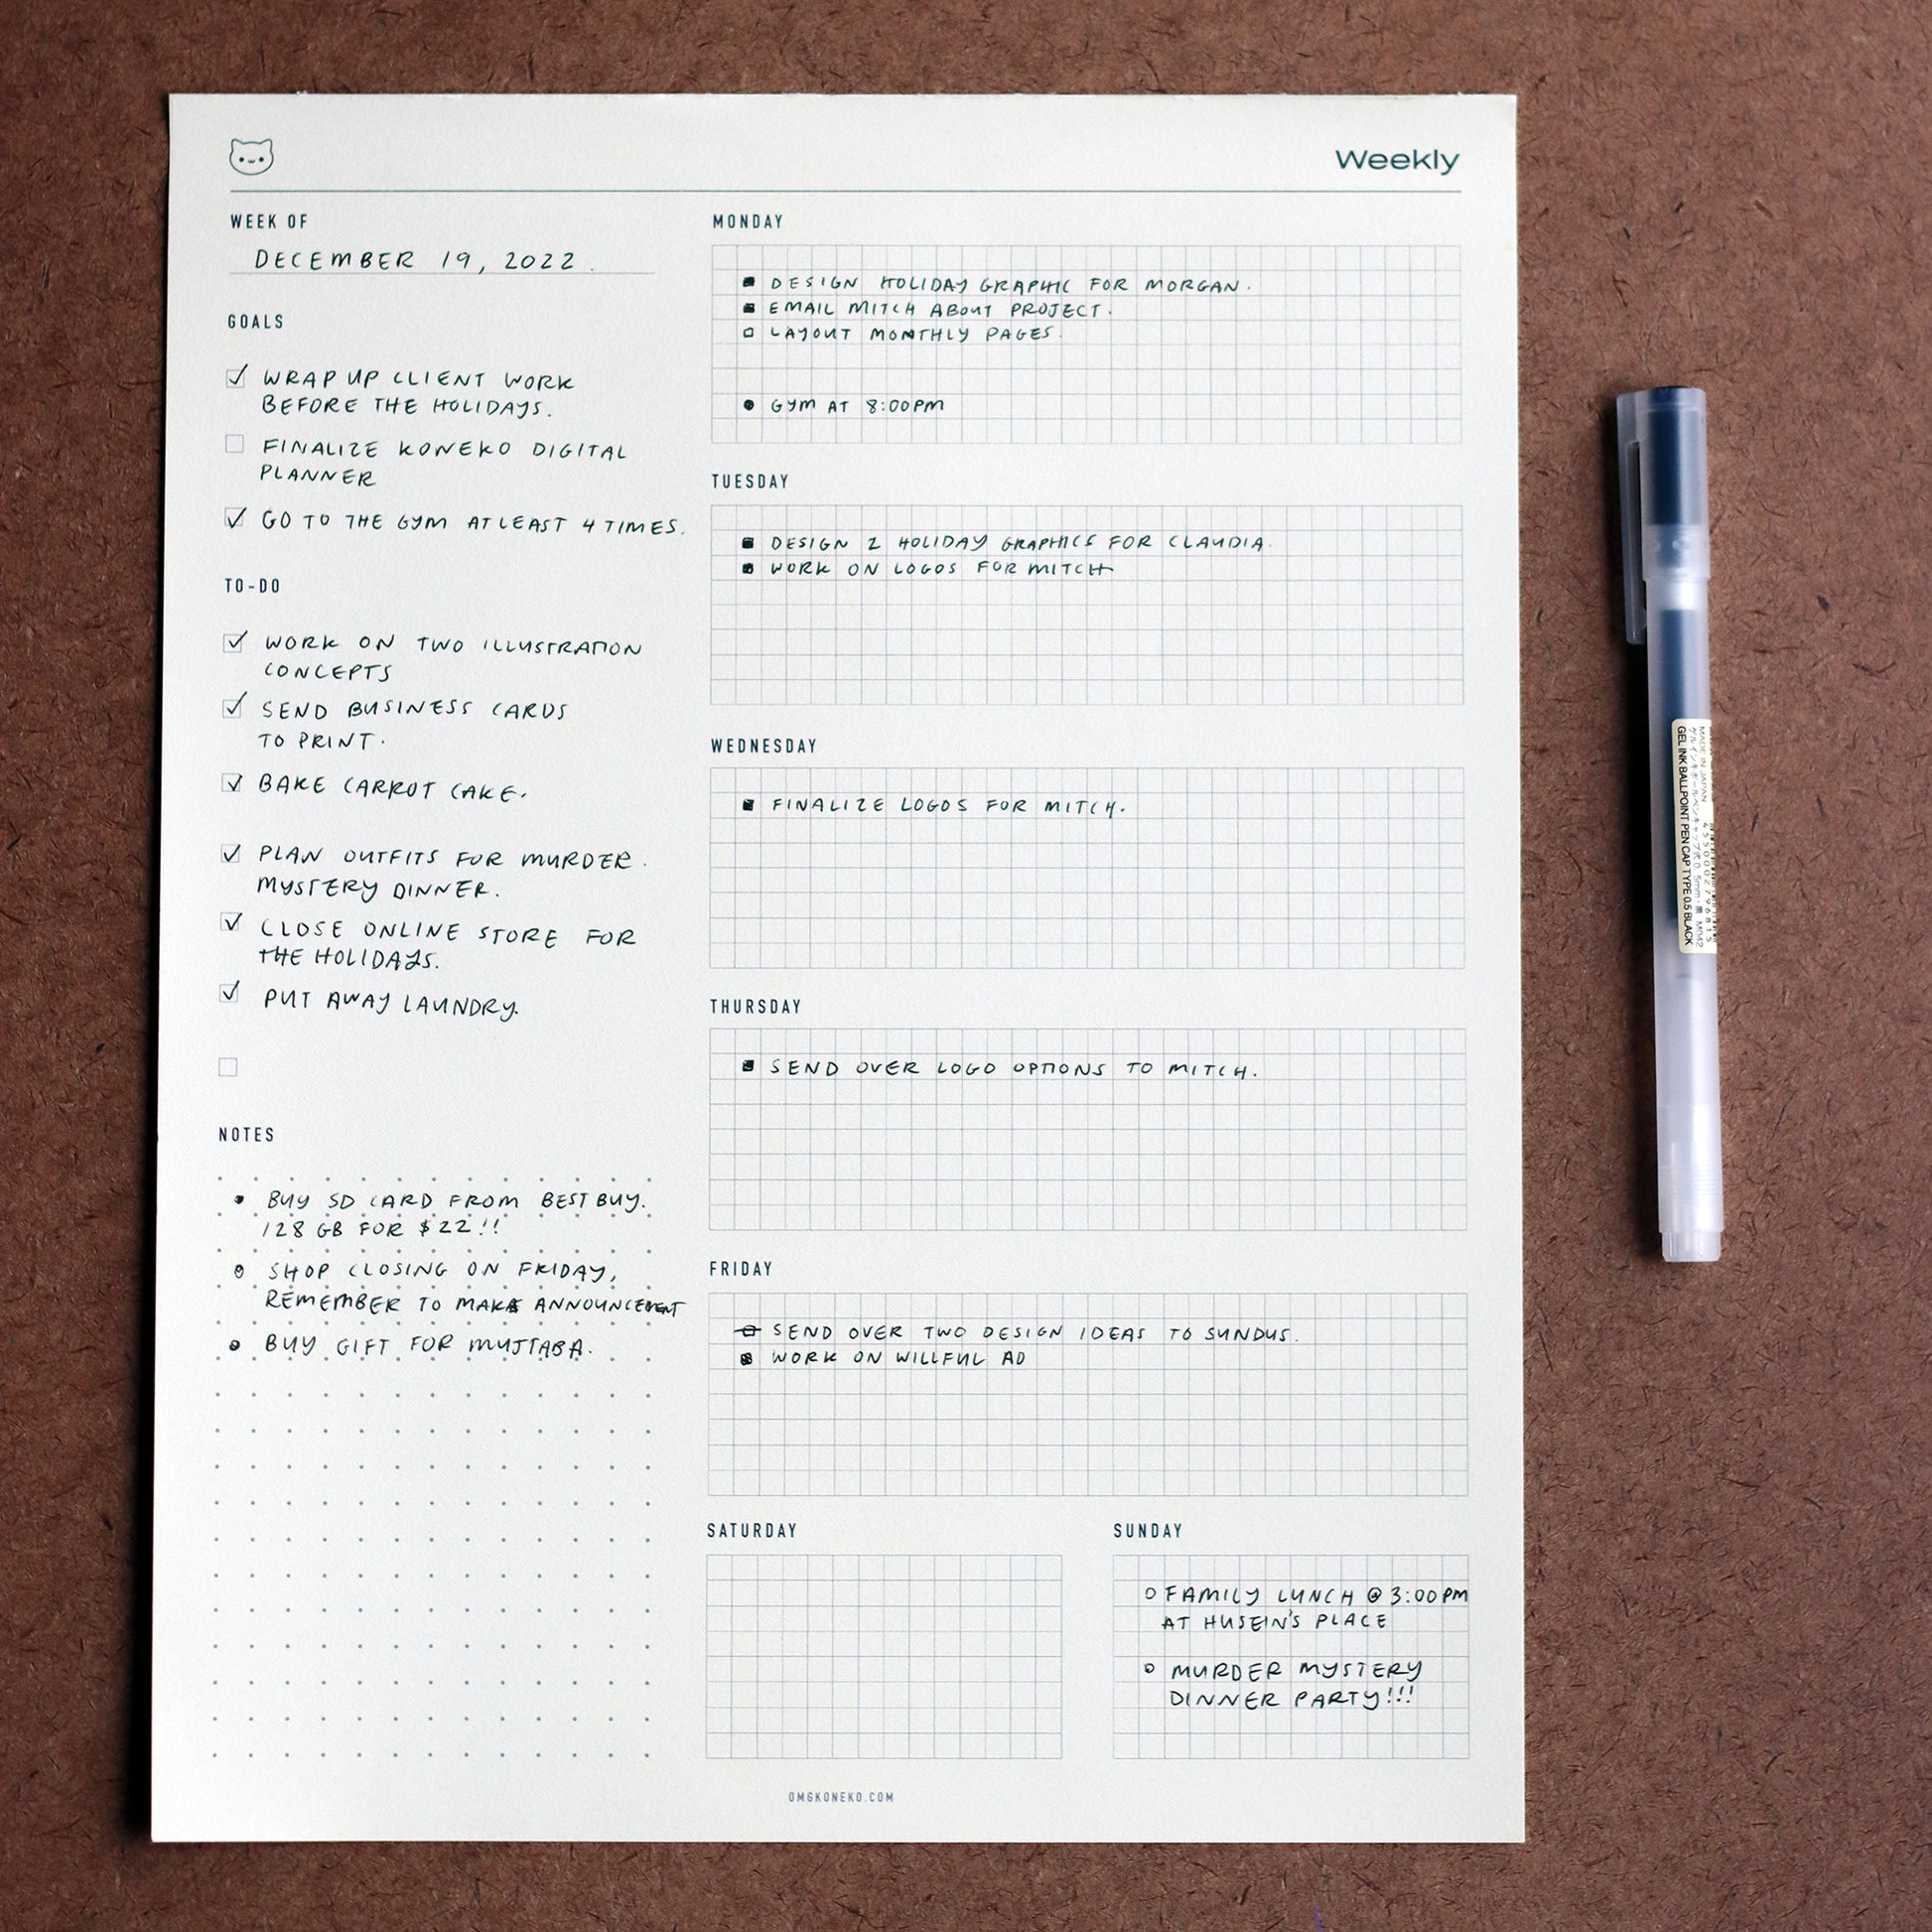 Weekly
WEEK OF
DECEMBER 19, 2022
GOALS
WRAP UP CLIENT WORK
BEFORE THE HOLIDAYS.
FINALIZE KONEKO DIGITAL
PLANNER
GO TO THE GYM AT LEAST 4 TIMES.
TO-DO
WORK ON TWO ILLUSTRATION
CONCEPTS
SEND BUSINESS CARDS
TO PRINT.
BAKE CARROT CAKE.
PLAN OUTFITS FOR MURDER
MYSTERY DINNER.
CLOSE ONLINE STORE FOR
THE HOLIDAYS.
PUT AWAY LAUNDRY.
NOTES
BUY SD CARD FROM BEST BUY.
128 GB FOR $22!!
SHOP CLOSING ON FRIDAY,
REMEMBER TO MAKE ANNOUNCEMENT
BUY GIFT FOR MUJTABA.
MONDAY
DESIGN HOLIDAY GRAPHIC FOR MORGAN.
EMAIL MITCH ABOUT PROJECT.
LAYOUT MONTHLY PAGES.
GYM AT 8:00PM
TUESDAY
DESIGN 2 HOLIDAY GRAPHICS FOR CLAUDIA.
WORK ON LOGOS FOR MITCH
WEDNESDAY
FINALIZE LOGOS FOR MITCH.
THURSDAY
SEND OVER LOGO OPTIONS TO MITCH.
FRIDAY
SEND OVER TWO DESIGN IDEAS TO SUNDUS.
WORK ON WILLFUL AD
SATURDAY
SUNDAY
FAMILY LUNCH @ 3:00PM
AT HUSEIN'S PLACE
MURDER MYSTERY
DINNER PARTY!!!
OMGKONEKO.COM
MADE IN JAPAN
GEL INK BALLPOINT PEN CAP TYPE 0.5 BLACK